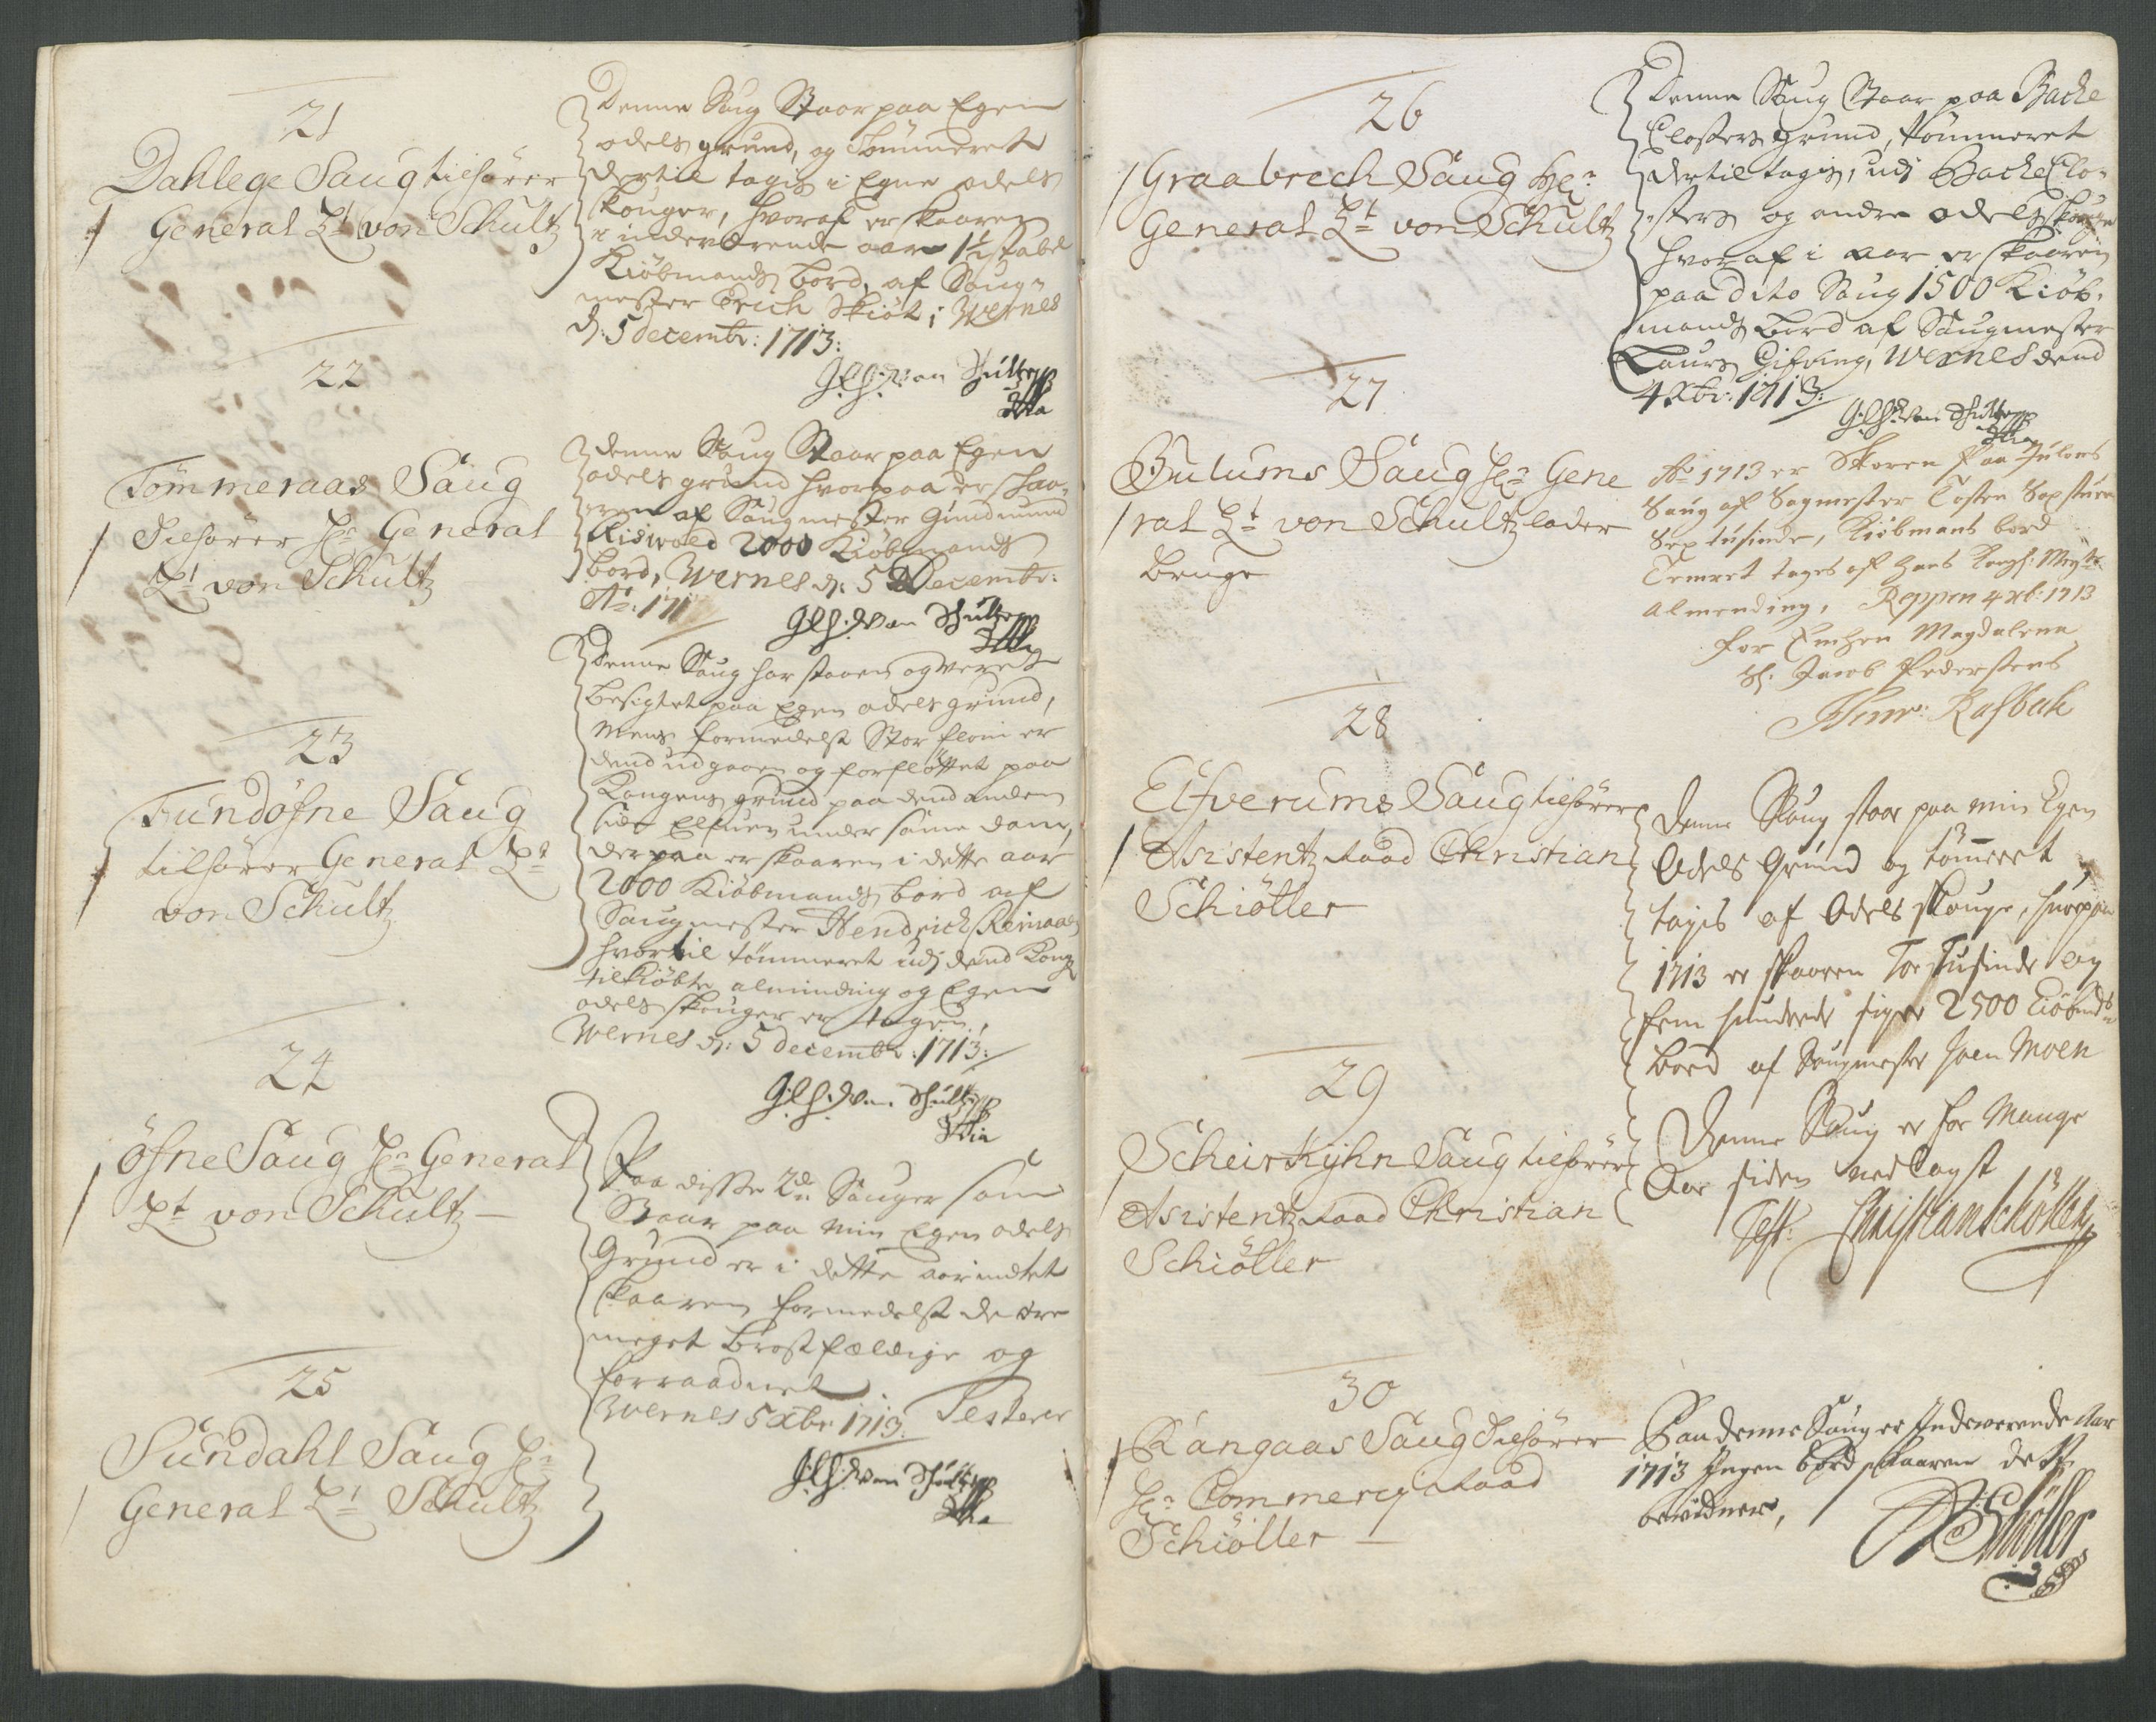 21
Dahlege Saug tilhörer
General Lt von Schultz
Denne Saug Staar paa Egen
odels grund, og Tömmeret
dertil tagis i Egne odels
skouger, hvoraf er skaaren
i indeværende aar 1½ tabt
Kiöbmands bord, af Saug-
mester Erich Skiöt; Wernes
d: 5 decembr: 1713:
22
Tömmeraas Saug
Tilhörer Hr General
Lt von Schultz
denne Saug Staar paa Egen
odels grund hvorpaa er skaa-
ren af Saugmester Gundmund
Risvold 2000 Kiöbmands
bord, Wernes d: 5 Decembr:
Ao: 171
23
Fundöfne Saug
tilhörer General Lt
von Schultz
Denne Saug har staaen og veret
besigtet paa Egen odels grund,
mens formedelst Stor flom er
dend udgaaen og forflöttet paa
Kongens grund paa dend anden
side Elfuen under samme dam,
derpaa er skaaren i dette aar
2000 Kiöbmands bord af
Saugmester Hendrich Reinaas
hvortil tömmeret udj dend Kong
tilkiöbte alminding og Egen
odels skouger er tagen,
Wernes d: 5 decembr: 1713:
24
öfne Saug Hr General
Lt von Schultz
Paa disse 2de Sauger som
Staar paa min Egen odels
Grund er i dette aar indtet
skaaren formedelst de ere
meget brostfeldige og
forraadnet
Wernes 5 Xbr 1713. Testerer
25
Sundahl Saug Hr
General Lt Schultz
26
Graabrech Saug Hr
General Lt von Schultz
Denne Saug Staar paa Bache
Closters grund, tömmeret
dertil tagis, udj Bache Clo-
sters og andre odels skouge
hvoraf i aar er skaaren
paa dito Saug 1500 Kiöb-
mands bord af Saugmester
Laurs Gifving, Wernes dend
4 Xbr: 1713:
27
Gulums Saug Hr Gene
ral Lt von Schultz lader
bruge
Ao 1713 er Skoren paa Julons
Saug af Sagmester Tosten Sopstuen
Sex tusinde, Kiöbmans bord
Temret tages af Hans Kongl: Mayts
almending, Reppen 4 xb: 1713
for Enchen Magdalena
Sl. Jacob Pederstens
28
Elfverums Saug tilhörer
Asistentz Raad Christian
Schiöller
Denne Saug staar paa min Egen
Odels Grund og tömeret
tages af Odels skouge, huorpaa
1713 er skaaren Toe Tusinde og
fem hundrede siger 2500 Kiöbmds
bord af Saugmester Joen Moen
29
Scheirkyhn Saug tilhörer
Asistentz Raad Christian
Schiöller
Denne Saug er for Mange
Aar siden nedlagt
Test: Christian Schöller
30
Rangaas Saug Tilhörer
Hr Commercj Raad
Schiöller
Paa denne Saug er Indeværende Aar
1713 Ingen bord skaaren dette
bevidner,
Schöller